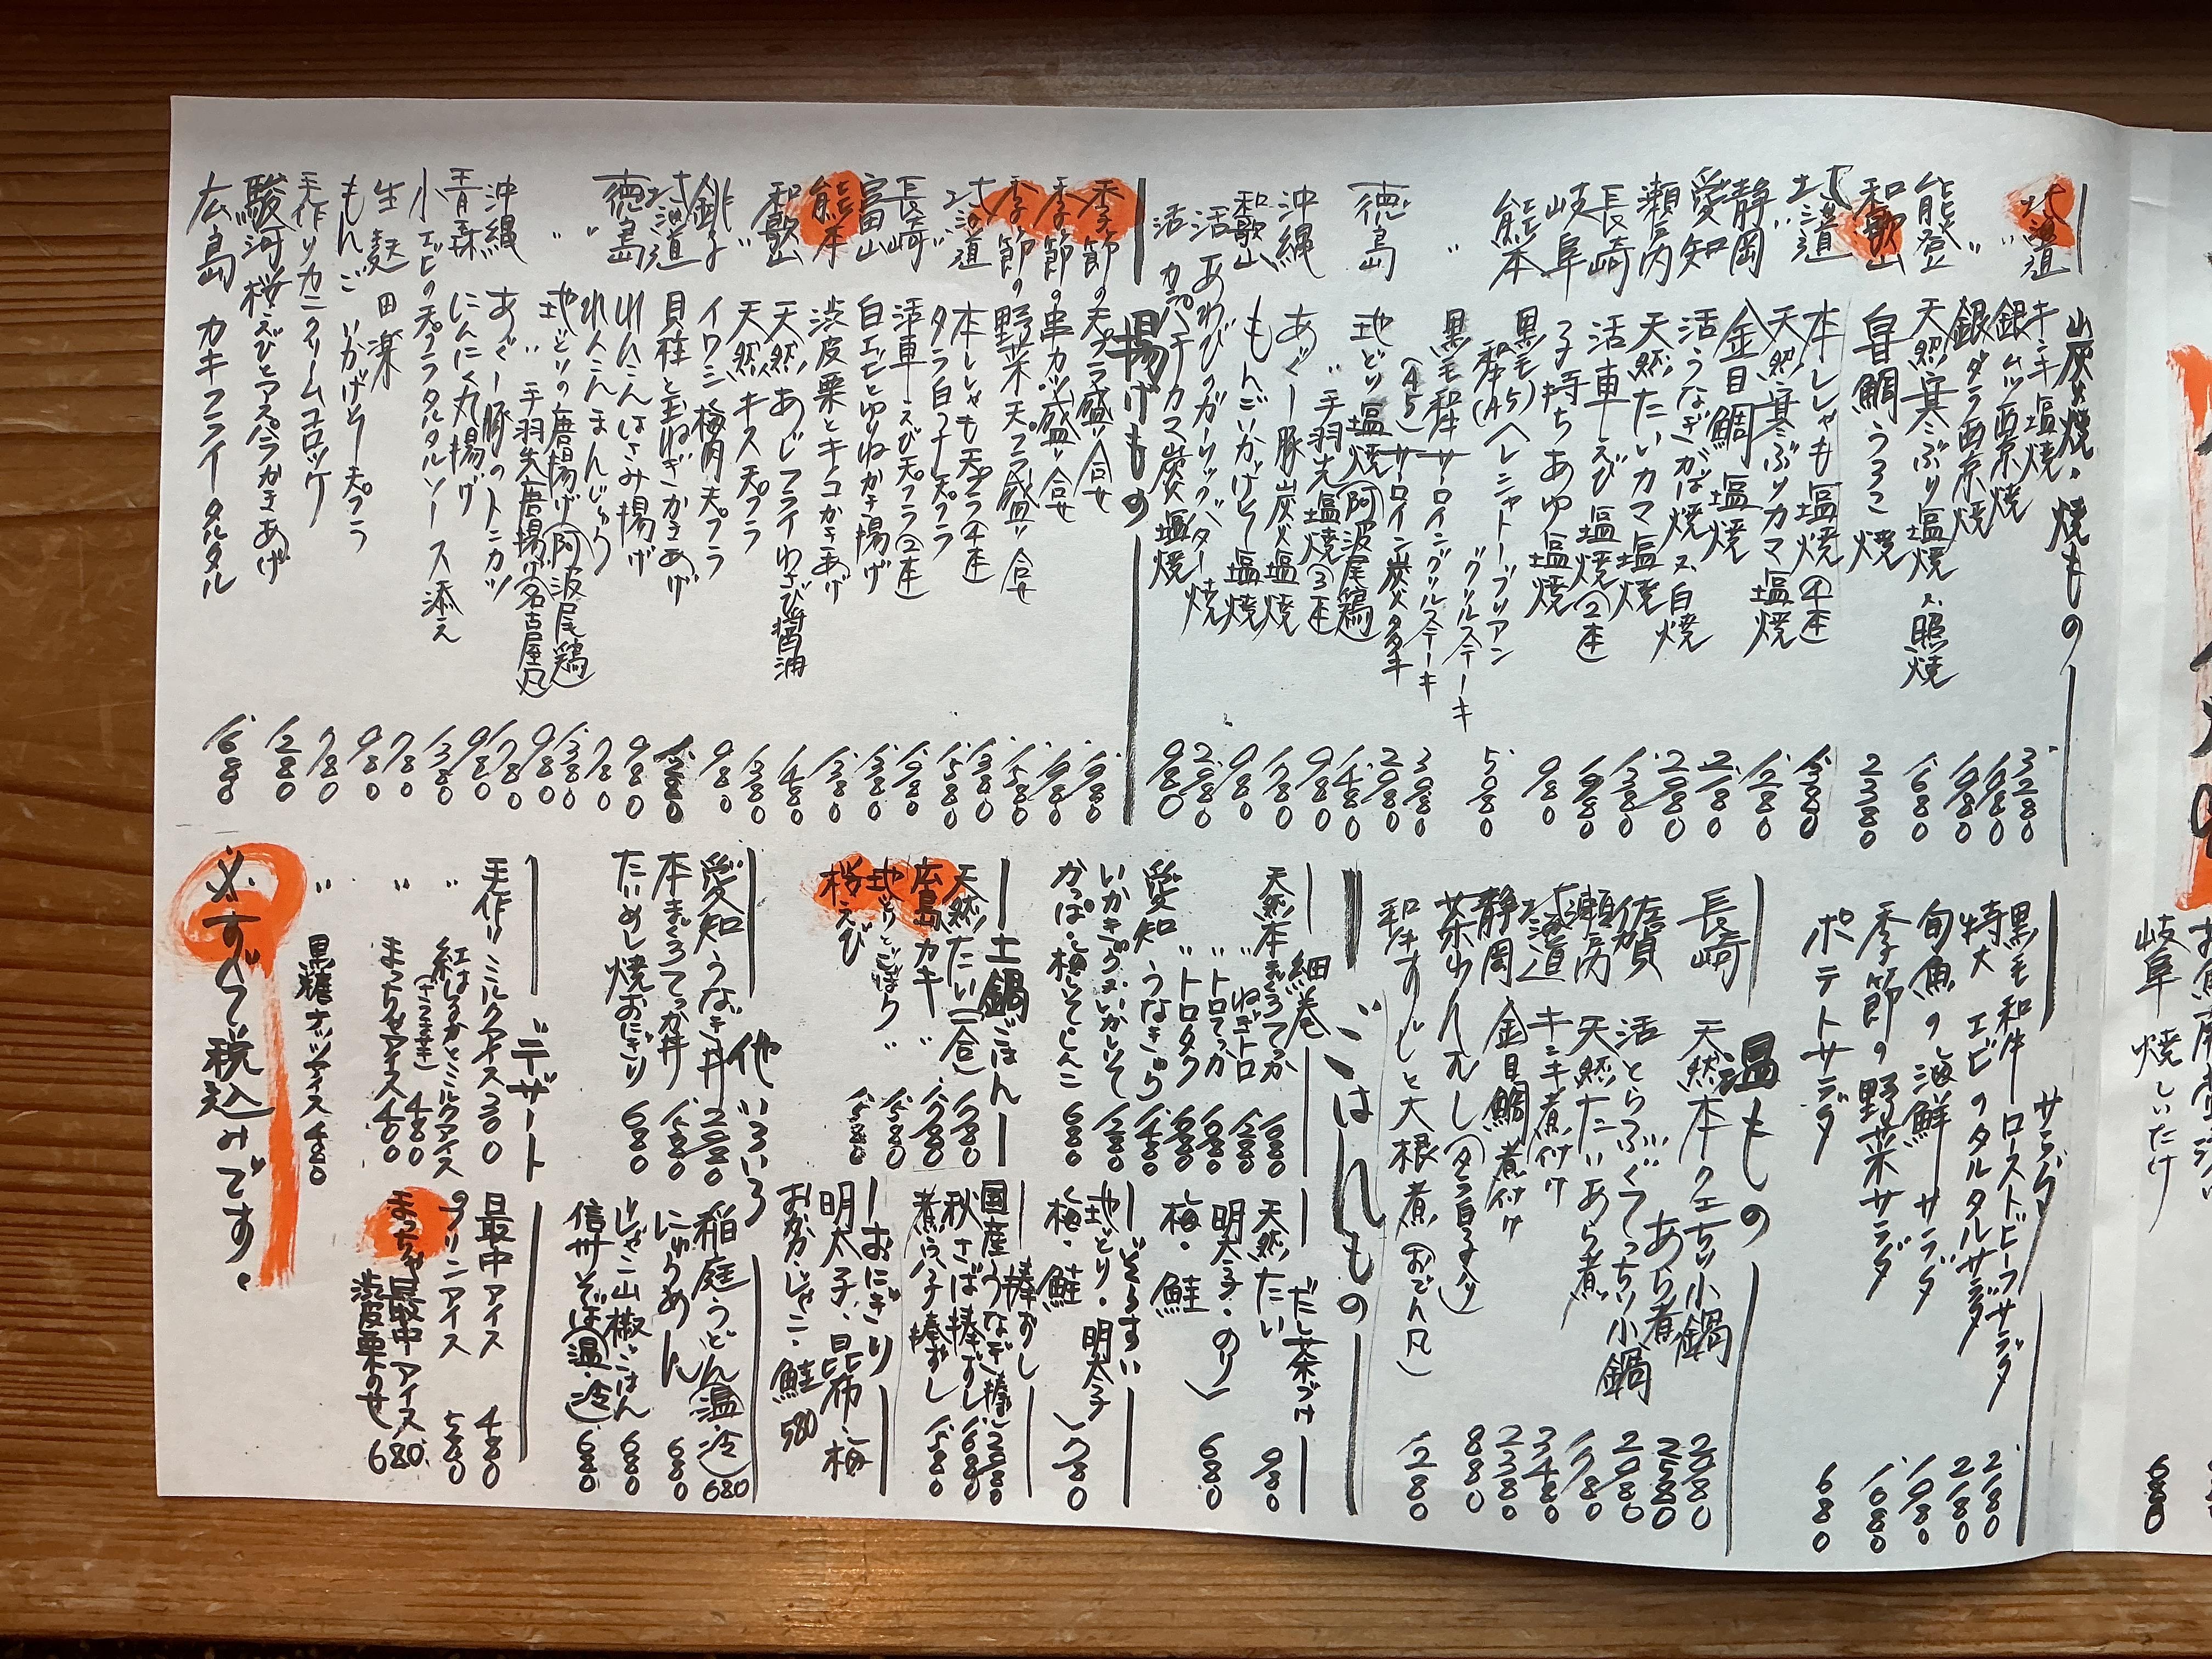 炭火焼・焼もの
北海道 キンキ塩焼 3280
〃 銀ムツ西京焼 1980
銀ダラ西京焼 1980
能登 天然寒ぶり塩焼又照焼 1680
和歌山 甘鯛うろこ焼 2380
北海道 本ししゃも塩焼(4本) 1380
〃 天然寒ぶりカマ塩焼 1280
静岡 金目鯛塩焼 2180
愛知 活うなぎかば焼又白焼 2980
瀬戸内 天然たいカマ塩焼 1380
長崎 活車えび塩焼(2本) 1980
岐阜 子持ちあゆ塩焼 980
熊本 黒毛和牛(A5)ヘレシャトーブリアングリルステーキ 5080
〃 黒毛和牛(A5)サーロイングリルステーキ 3080
サーロイン炭火タタキ 2980
徳島 地どり塩焼(阿波尾鶏) 1480
〃 手羽先塩焼(3本) 980
沖縄 あぐー豚炭火塩焼 1780
和歌山 もんごいかげそ塩焼 980
活あわびのガーリックバター焼 2980
活カンパチカマ炭塩焼 980
揚げもの
季節の天プラ盛り合せ 1980
季節の串カツ盛り合せ 1980
季節の野菜天プラ盛り合せ 1580
北海道 本ししゃも天プラ(4本) 1380
〃 タラ白子天プラ 1580
長崎 活車えび天プラ(2本) 1980
富山 白エビとゆりねかき揚げ 1380
熊本 渋皮栗とキノコかきあげ 1380
和歌山 天然あじフライわさび醤油 1480
〃 天然キス天プラ 1380
銚子 イワシ梅肉天プラ 980
北海道 貝柱と玉ねぎかきあげ 1380
徳島 れんこんはさみ揚げ 980
〃 れんこんまんじゅう 780
〃 地どりの唐揚げ(阿波尾鶏) 1380
〃 手羽先唐揚げ(名古屋風) 980
沖縄 あぐー豚のトンカツ 1780
青森 にんにく丸揚げ 980
小エビの天プラタルタルソース添え 1380
生麩田楽 780
もんごいかげそ天プラ 980
手作りカニクリームコロッケ 780
駿河 桜えびとアスパラかきあげ 1280
広島 カキフライタルタル 1680
サラダ
黒毛和牛ローストビーフサラダ 2180
特大エビのタルタルサラダ 2180
旬魚の海鮮サラダ 1980
季節の野菜サラダ 1680
ポテトサラダ 680
温もの
長崎 天然本クエちり小鍋 2980
あら煮 2580
佐賀 活とらふぐてっちり小鍋 2980
瀬戸内 天然たいあら煮 1780
北海道 キンキ煮付け 3480
静岡 金目鯛煮付け 2380
茶わんむし(タラ白子入り) 880
和牛すじと大根煮(おでん風) 1280
ごはんもの
細巻
天然本まぐろてっか 1680
〃 ねぎトロ 1280
〃 トロてっか 1680
〃 トロタク 1680
愛知 うなきゅう 1480
いかきゅう又いかしそ 1280
かっぱ・梅しそ・しんこ 680
だし茶づけ
天然たい 980
明太子・のり
梅・鮭 680
ぞうすい
地どり・明太子
梅・鮭 780
土鍋ごはん
天然たい(一合) 1680
広島 カキ 〃 1780
地どりとごぼう 〃 1580
桜えび 1580
棒ずし
国産うなぎ棒ずし 2880
秋さば棒ずし 1680
煮穴子棒ずし 1580
おにぎり
明太子・昆布・梅
おかか・じゃこ・鮭 580
他いろいろ
愛知 うなぎ丼 2080
本まぐろてっか丼 1580
たいめし焼おにぎり 680
稲庭うどん(温・冷) 680
にゅうめん 680
じゃこ山椒ごはん 680
信州そば(温・冷) 680
デザート
手作り ミルクアイス 300
〃 紅はるかとミルクアイス(さつまいも) 480
〃 まっちゃアイス 400
〃 黒糖ナッツアイス 480
最中アイス 480
プリンアイス 580
まっちゃ最中アイス 680
渋皮栗のせ 680
※すべて税込みです。
岐阜 焼しいたけ 680